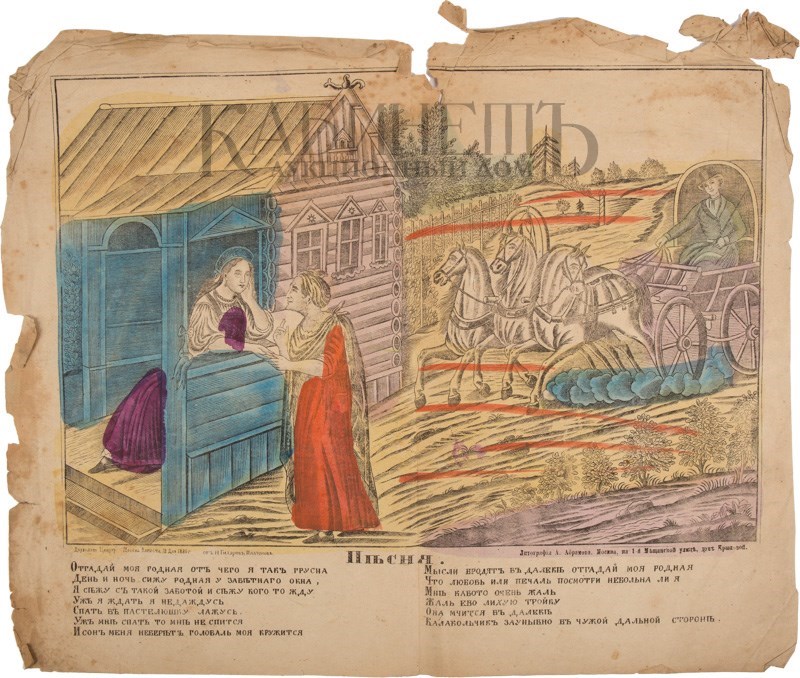 КАБИНЕТЪ
АУКЦИОННЫЙ ДОМ
Москва
Литографія А. Абрамова. Москва, на 1-й Мѣщанской улицѣ, домъ
Пѣсня.
Отгадай моя родная отъ чего я такъ грусна
День и ночь сижу родная у завѣтнаго окна,
Я сѣжу съ такой заботой и сѣжу кого то жду
Ужъ я ждать я недаждусь
Спать въ пастелюшку лажусь.
Ужъ мнѣ спать то мнѣ не спится
И сонъ меня неберытъ головаль моя кружится
Мысли бродятъ въ далекѣ отгадай моя родная
Что любовь или печаль посмотри небольна ли я
Мнѣ кавото очень жаль
Жаль ево лихую тройку
Она мчится въ далекѣ
Калакольчикъ заунывно въ чужой дальной сторонѣ.